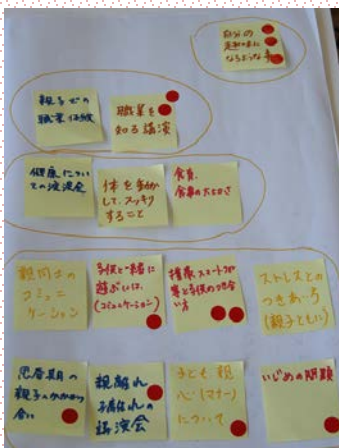 自分の
親子での
職業体験
職業を
知る講演
健康につい
ての講演会
体を動か
して、スッキリ
すること
食育、
食事の大切さ
親同士の
コミュニ
ケーション
子供と一緒に
遊ぶには、
(コミュニケーション)
携帯、スマート
ストレスとの
つきあい方
(親子ともに)
思春期の
親子のかかわり
合い
親離れ
子離れの
講演会
子ども 親
(マナー)
について
いじめの問題